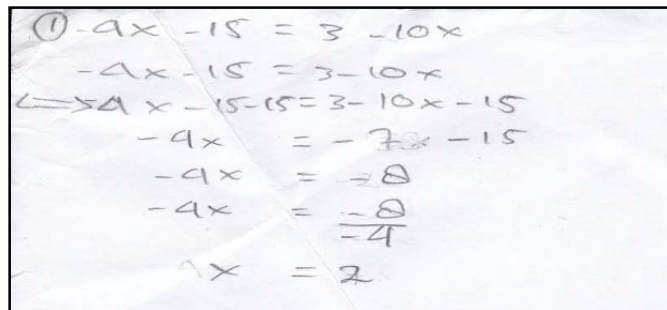 ① -4x - 15 = 3 - 10x
-4x - 15 = 3 - 10x
<=> 4x - 15 - 15 = 3 - 10x - 15
-4x = - 7x - 15
-4x = -8
-4x = -8
-4
x = 2